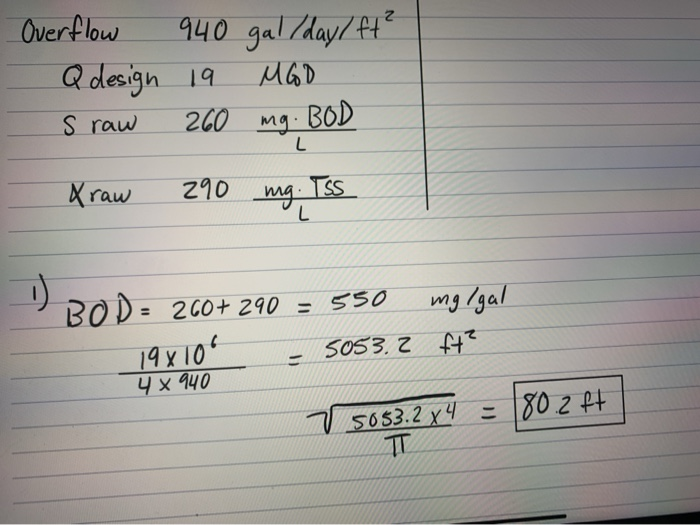 Overflow 940 gal/day/ft²
Q design 19 MGD
S raw 260 mg. BOD / L
X raw 290 mg. TSS / L
1) BOD = 260 + 290 = 550 mg/gal
19 x 10⁶ / 4 x 940 = 5053.2 ft²
√(5053.2 x 4 / π) = 80.2 ft